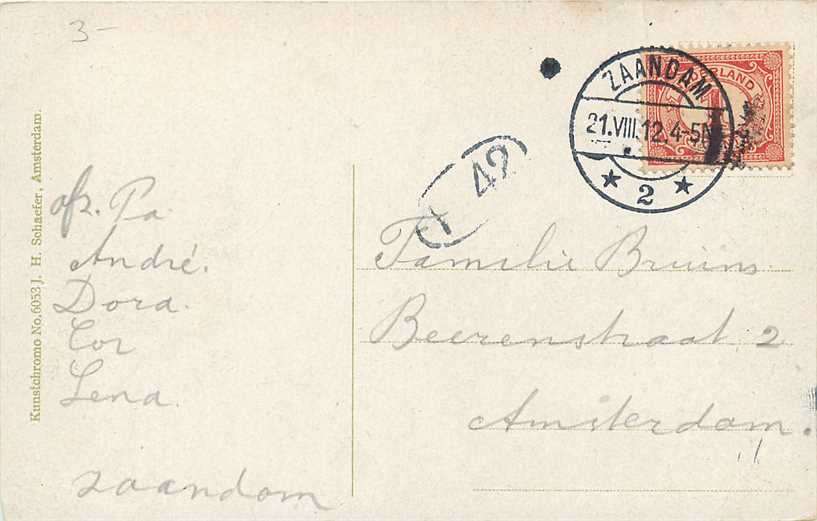 3-
Kunstchromo No. 6053 J. H. Schaefer, Amsterdam.
afz. Pa
André.
Dora.
Cor
Lena.
zaandam
ZAANDAM
21.VIII.12.4-5N
2
42
Familie Bruins.
Beerenstraat 2
Amsterdam.